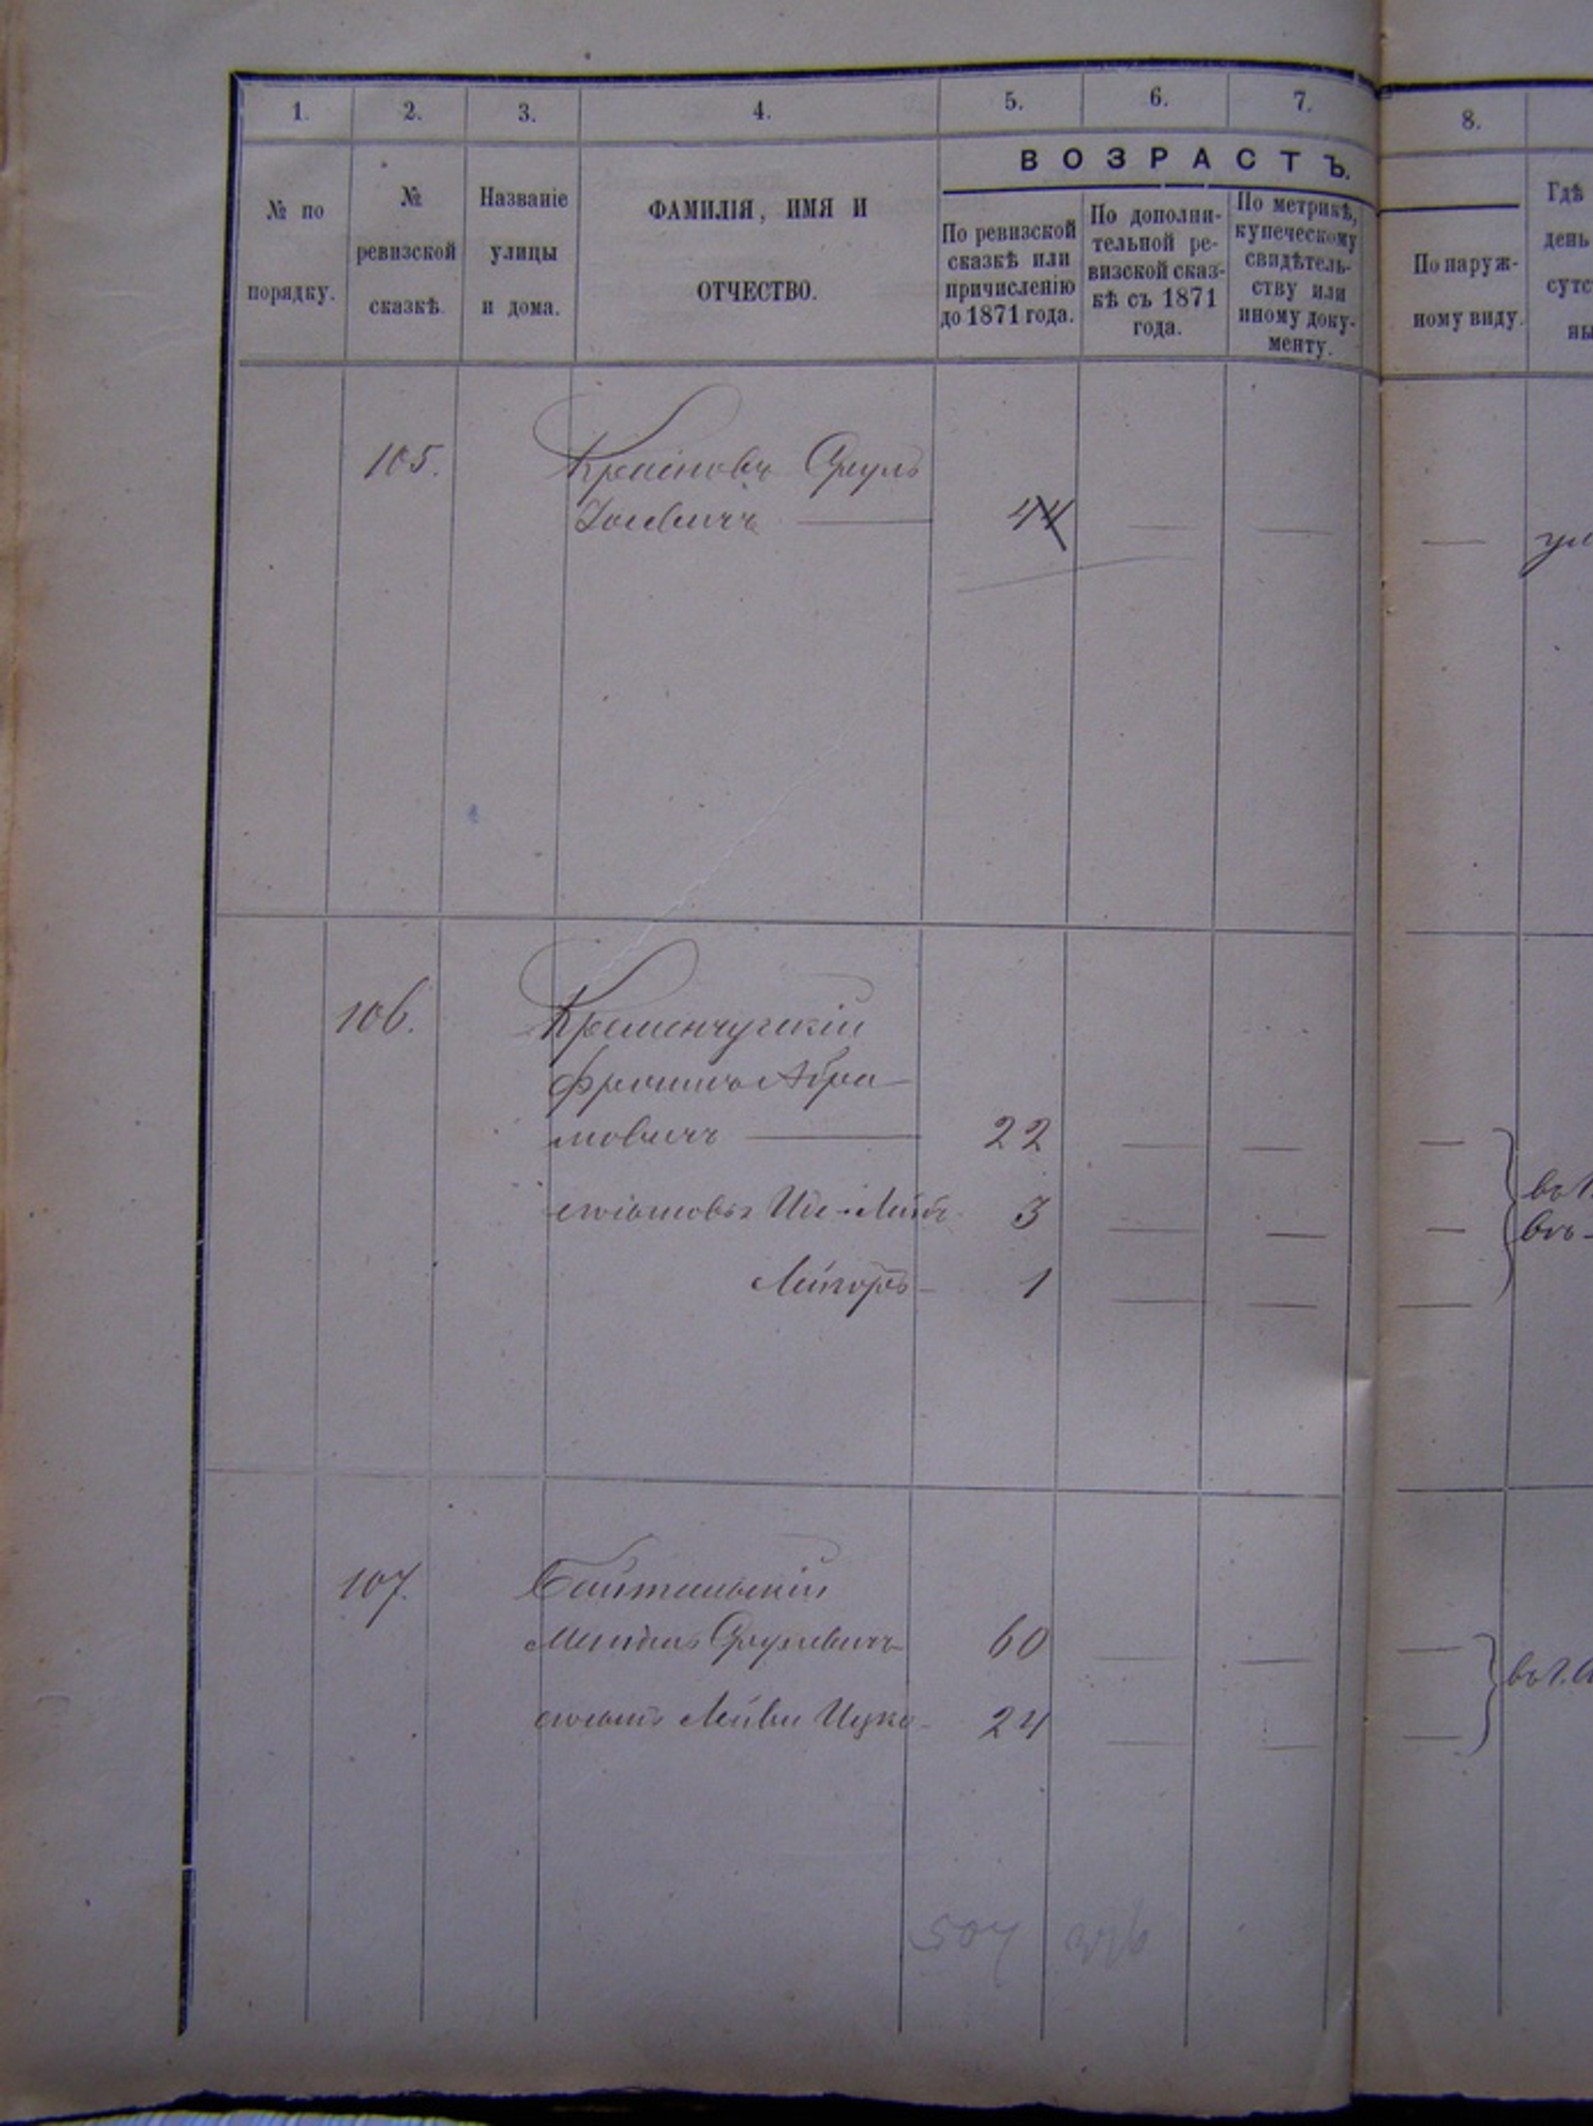 1. 2. 3. 4. 5. 6. 7. 8.
ВОЗРАСТЪ.
№ по
порядку.
№
ревизской
сказкѣ.
Названіе
улицы
и дома.
ФАМИЛІЯ, ИМЯ И
ОТЧЕСТВО.
По ревизской
сказкѣ или
причисленію
до 1871 года.
По дополни-
тельной ре-
визской сказ-
кѣ съ 1871
года.
По метрикѣ,
купеческому
свидѣтель-
ству или
иному доку-
менту.
По наруж-
ному виду.
Гдѣ
день
сутс
ны
105. Краіновъ Сруль
44
106. Кременчугскій
Фроимъ Абра-
мовичъ 22
сыновья Иде-Лейб 3
1
107. Байтальскій
Мендель Срулевичъ 60
сынъ Лейви Ицко 24
504